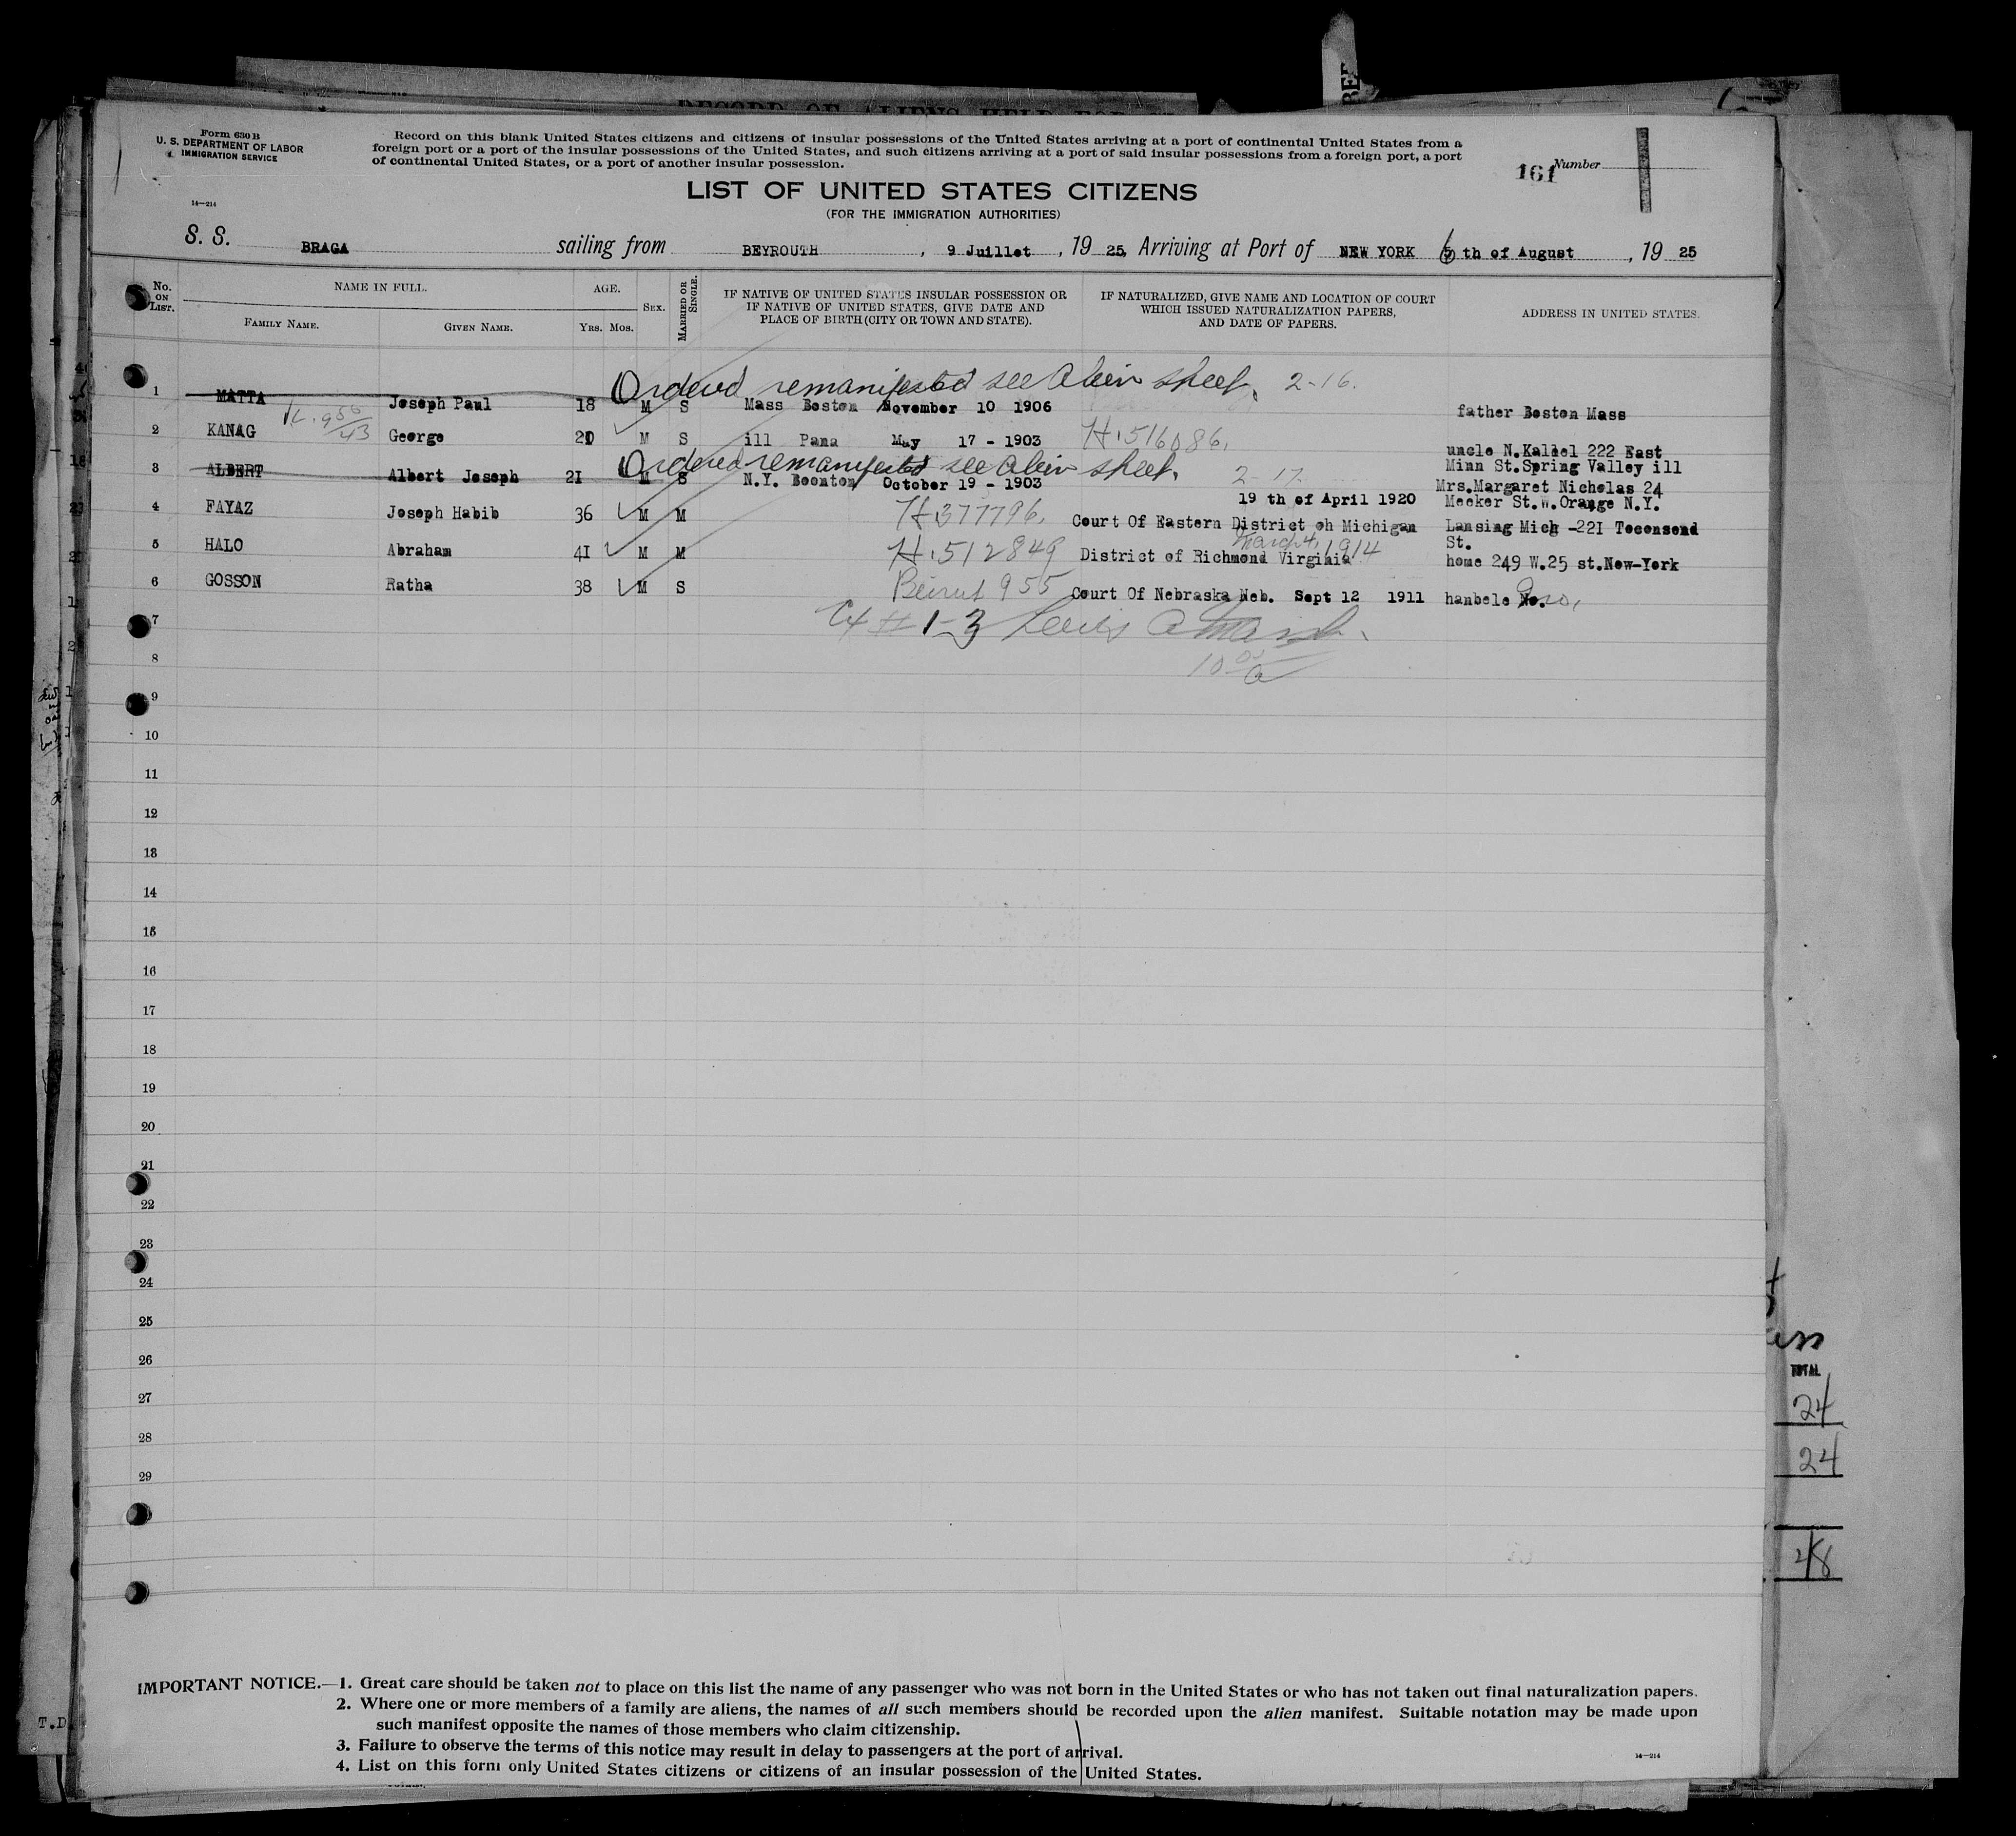 Form 630 B
U. S. DEPARTMENT OF LABOR
IMMIGRATION SERVICE
Record on this blank United States citizens and citizens of insular possessions of the United States arriving at a port of continental United States from a
foreign port or a port of the insular possessions of the United States, and such citizens arriving at a port of said insular possessions from a foreign port, a port
of continental United States, or a port of another insular possession.
161 Number
LIST OF UNITED STATES CITIZENS
14—214
(FOR THE IMMIGRATION AUTHORITIES)
S. S. BRAGA sailing from BEYROUTH , 9 Juillet , 19 25, Arriving at Port of NEW YORK th of August , 19 25
No. ON LIST.
NAME IN FULL.
FAMILY NAME. GIVEN NAME.
AGE.
YRS. MOS.
SEX.
MARRIED OR SINGLE.
IF NATIVE OF UNITED STATES INSULAR POSSESSION OR
IF NATIVE OF UNITED STATES, GIVE DATE AND
PLACE OF BIRTH (CITY OR TOWN AND STATE).
IF NATURALIZED, GIVE NAME AND LOCATION OF COURT
WHICH ISSUED NATURALIZATION PAPERS,
AND DATE OF PAPERS.
ADDRESS IN UNITED STATES.
Ordered remanifested see Alien sheet. 2-16.
1 MATTA Joseph Paul 18 M S Mass Boston November 10 1906 father Boston Mass
2 KANAG George M S ill Pana May 17 - 1903 H.516086. uncle N.Kallel 222 East
Minn St.Spring Valley ill
Ordered remanifested see Alien sheet. 2-17
3 ALBERT Albert Joseph 21 M S N.Y. Boonton October 19 - 1903 Mrs.Margaret Nicholas 24
Meeker St.W.Orange N.Y.
19 th of April 1920
4 FAYAZ Joseph Habib 36 M M H.377796. Court Of Eastern District oh Michigan Lansing Mich -221 Toconsend
St.
March 4, 1914
5 HALO Abraham 41 M M H.512849 District of Richmond Virginia home 249 W.25 st.New-York
6 GOSSON Ratha 38 M S Beirut 955 Court Of Nebraska Neb. Sept 12 1911 hanbele
7 # 1-3
8
9
10
11
12
13
14
15
16
17
18
19
20
21
22
23
24
25
26
27
28
29
TOTAL
24
24
48
IMPORTANT NOTICE.—1. Great care should be taken not to place on this list the name of any passenger who was not born in the United States or who has not taken out final naturalization papers.
2. Where one or more members of a family are aliens, the names of all such members should be recorded upon the alien manifest. Suitable notation may be made upon
such manifest opposite the names of those members who claim citizenship.
3. Failure to observe the terms of this notice may result in delay to passengers at the port of arrival.
4. List on this form only United States citizens or citizens of an insular possession of the United States.
14—214